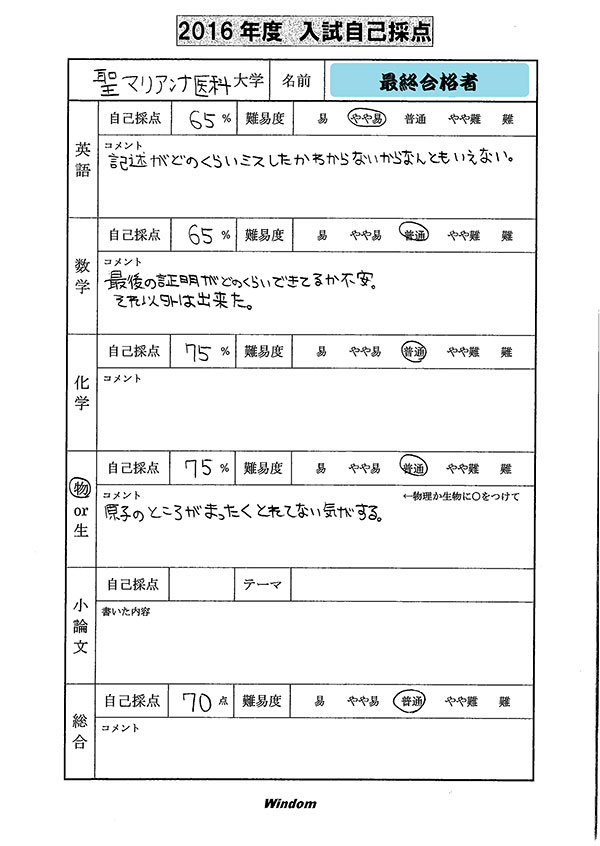 2016年度 入試自己採点
聖マリアンナ医科大学 名前 最終合格者
英語 自己採点 65% 難易度 易 やや易 普通 やや難 難
コメント
記述がどのくらいミスしたかわからないからなんともいえない。
数学 自己採点 65% 難易度 易 やや易 普通 やや難 難
コメント
最後の証明がどのくらいできてるか不安。
それ以外は出来た。
化学 自己採点 75% 難易度 易 やや易 普通 やや難 難
コメント
物or生 自己採点 75% 難易度 易 やや易 普通 やや難 難
コメント ←物理か生物に○をつけて
原子のところがまったくとれてない気がする。
小論文 自己採点 テーマ
書いた内容
総合 自己採点 70点 難易度 易 やや易 普通 やや難 難
コメント
Windom